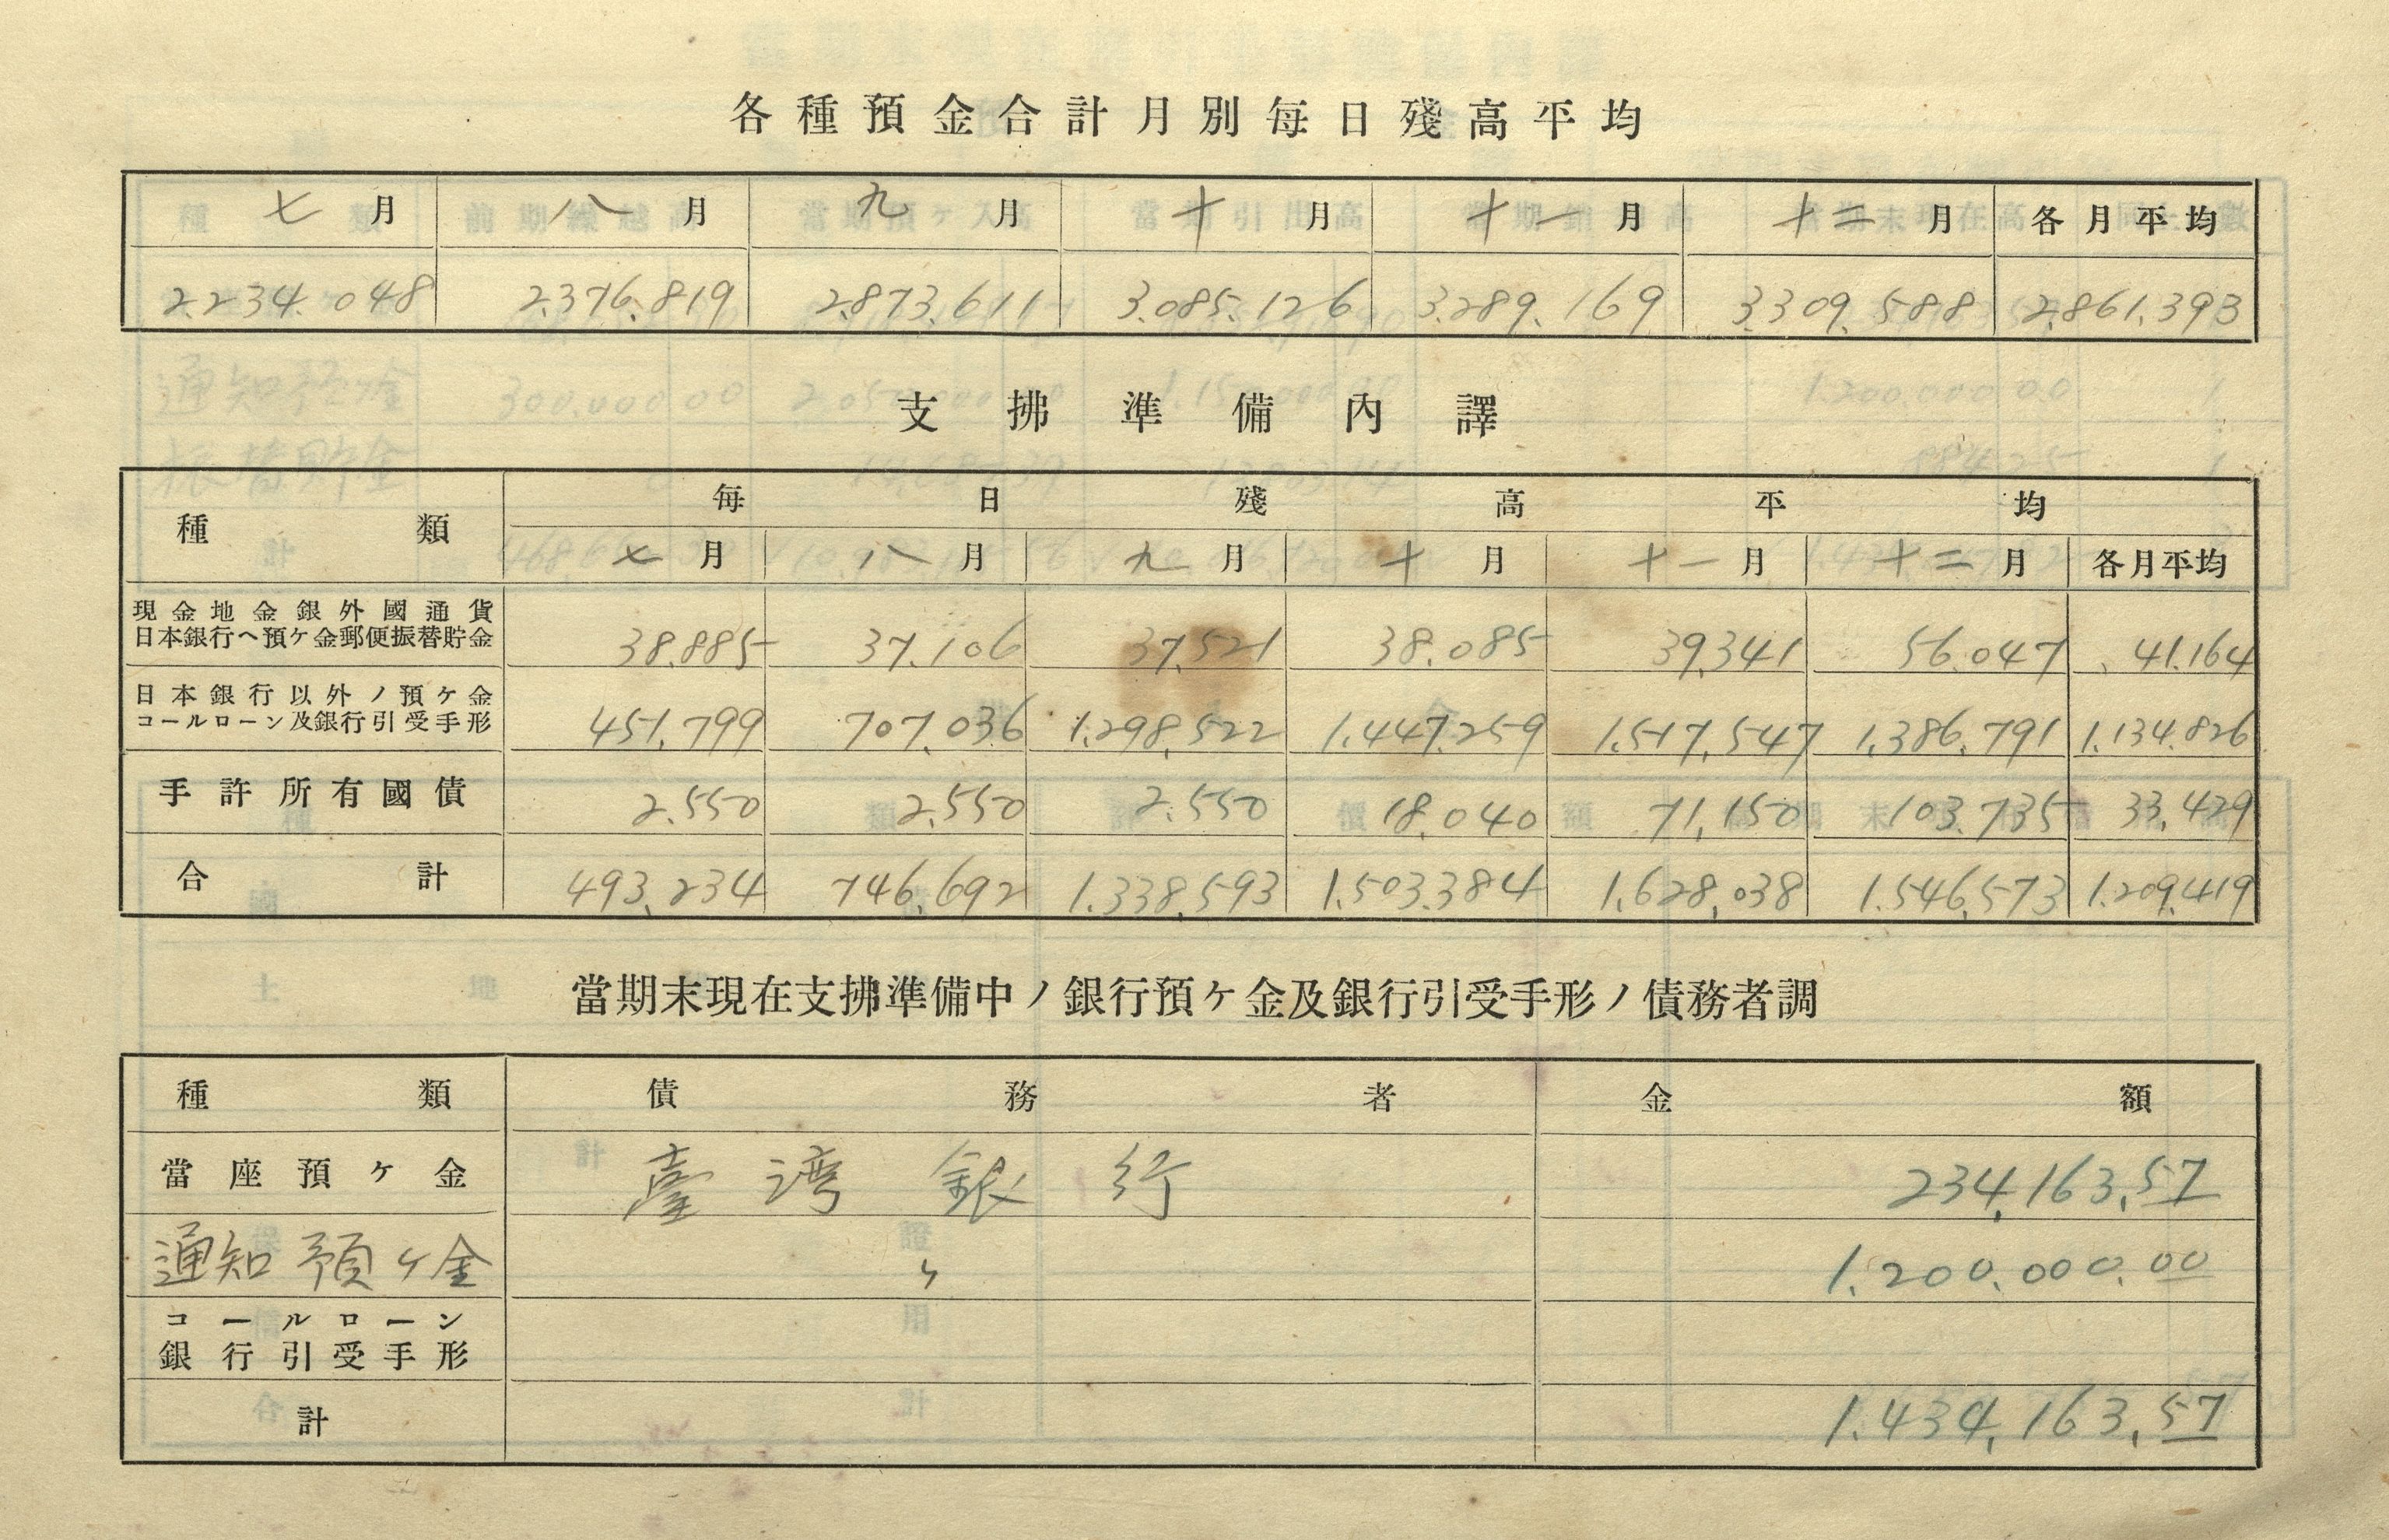 各種預金合計月別每日殘高平均
七月 八月 九月 十月 十一月 十二月 各月平均
2.234.048 2.376.819 2.873.611 3.085.126 3.289.169 3.309.588 2.861.393
支拂準備內譯
種類 每日殘高平均
七月 八月 九月 十月 十一月 十二月 各月平均
現金地金銀外國通貨
日本銀行へ預ケ金郵便振替貯金 38.885 37.106 37.521 38.085 39.341 56.047 41.164
日本銀行以外ノ預ケ金
コールローン及銀行引受手形 451.799 707.036 1.298.522 1.447.259 1.517.547 1.386.791 1.134.826
手許所有國債 2.550 2.550 2.550 18.040 71.150 103.735 33.429
合計 493.234 746.692 1.338.593 1.503.384 1.628.038 1.546.573 1.209.419
當期末現在支拂準備中ノ銀行預ケ金及銀行引受手形ノ債務者調
種類 債務者 金額
當座預ケ金 臺湾銀行 234,163.57
通知預ケ金 〃 1.200.000.00
コールローン
銀行引受手形
計 1.434,163.57